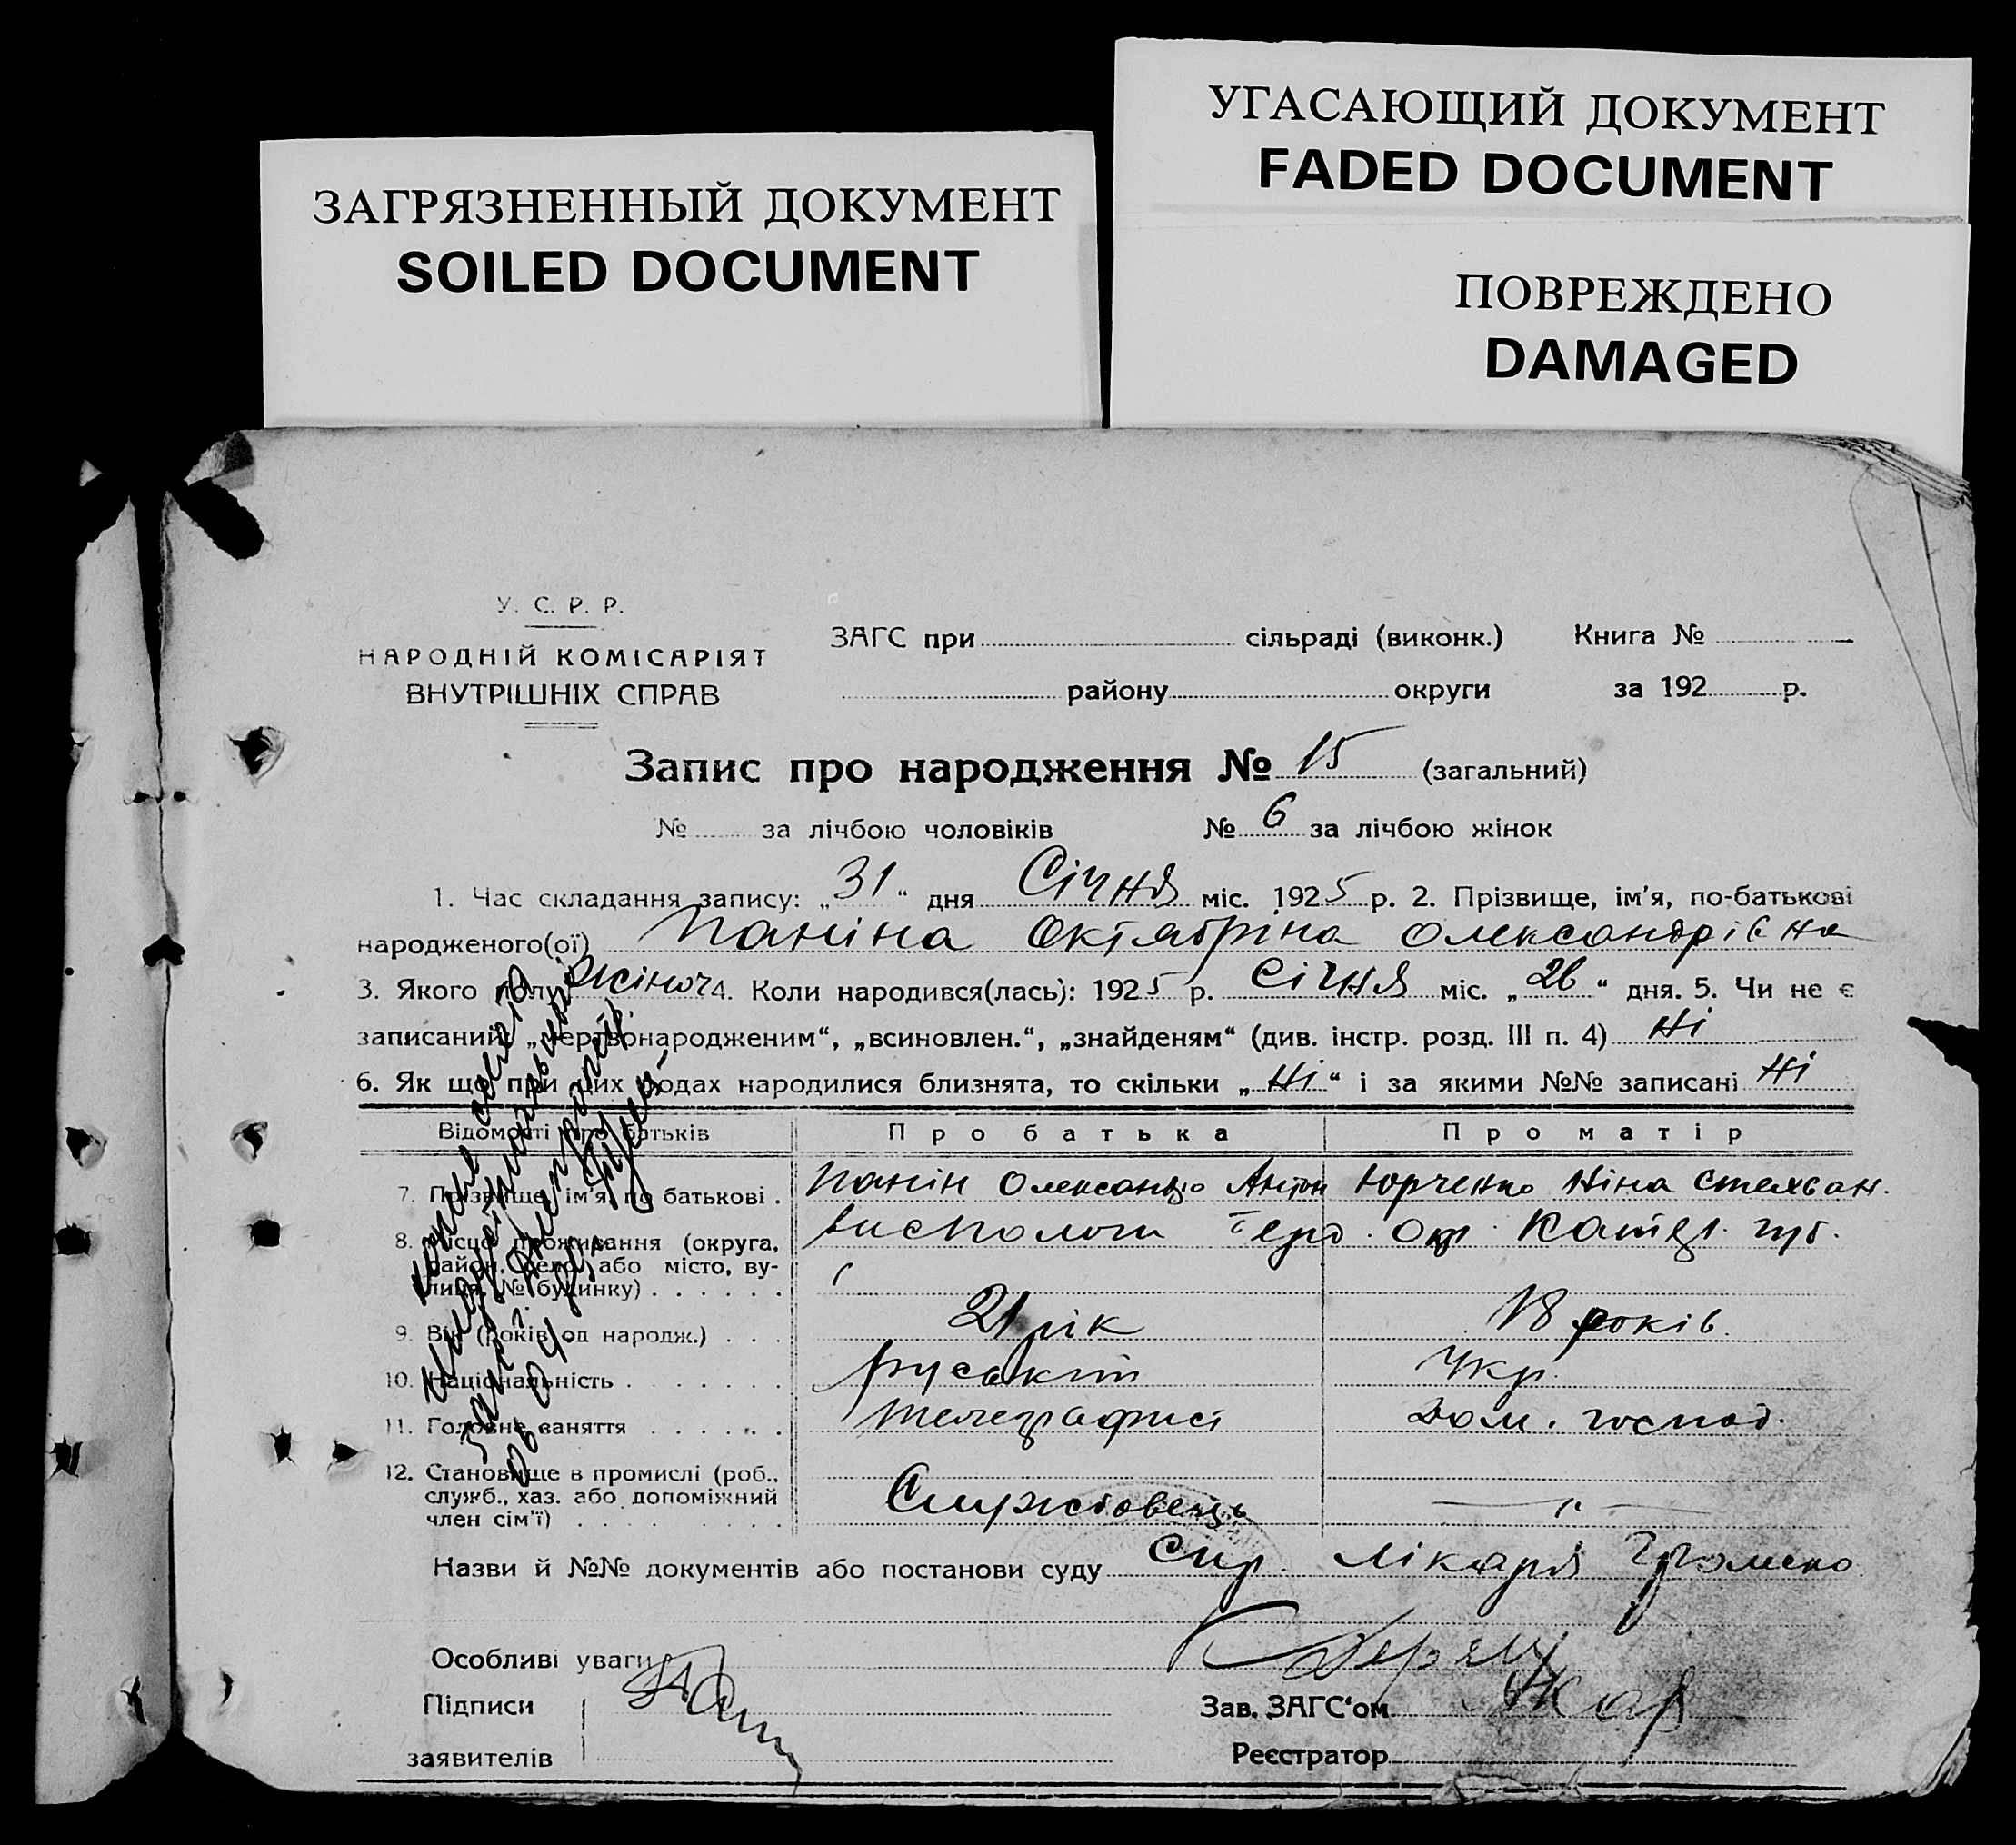 УГАСАЮЩИЙ ДОКУМЕНТ
FADED DOCUMENT
ЗАГРЯЗНЕННЫЙ ДОКУМЕНТ
SOILED DOCUMENT
ПОВРЕЖДЕНО
DAMAGED
У. С. Р. Р.
НАРОДНІЙ КОМІСАРІЯТ
ВНУТРІШНІХ СПРАВ
ЗАГС при сільраді (виконк.) Книга №
району округи за 192 р.
Запис про народження № 15 (загальний)
№ за лічбою чоловіків № 6 за лічбою жінок
1. Час складання запису: „31“ дня Січня міс. 1925 р. 2. Прізвище, ім'я, по-батькові
народженого(ої) Паніна Октябріна Олександрівна
3. Якого полу жіноч 4. Коли народився(лась): 1925 р. Січня міс. „26“ дня. 5. Чи не є
записаний „мертвонародженим“, „всиновлен.“, „знайденям“ (див. інстр. розд. III п. 4) Ні
6. Як що при цих родах народилися близнята, то скільки „Ні“ і за якими №№ записані Ні
Відомості про батьків Про батька Про матір
7. Прізвище, ім'я, по батькові . Панін Олександр Антон Юрченко Ніна Степан.
8. Місце проживання (округа, район, село, або місто, вулиця, № будинку) . . . . . . Окр. Катер. губ.
9. Вік (років од народж.) . . . 21 рік 18 років
10. Національність . . . . . . . руський Укр.
11. Головне заняття . . . . . . телеграфист Дом. господ.
12. Становище в промислі (роб., служб., хаз. або допоміжний член сім'ї) . . . . . . . . . Службовець — " —
Назви й №№ документів або постанови суду Спр. лікаря
Особливі уваги
Підписи
заявителів
Зав. ЗАГС'ом
Реєстратор